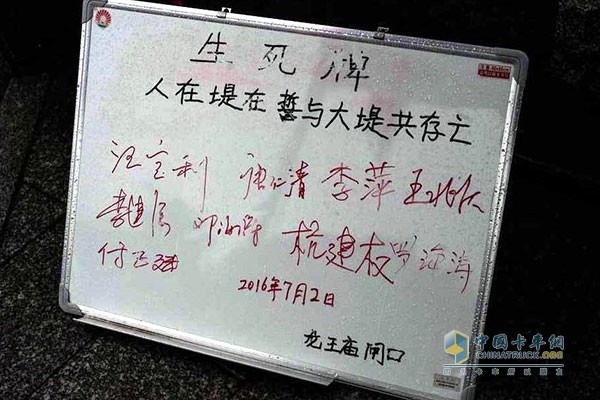 生死牌
人在堤在誓与大堤共存亡
汪宝利 唐仁清 李萍
杭建权 罗海涛
2016年7月2日
龙王庙闸口
中国卡车网
CHINATRUCK.ORG